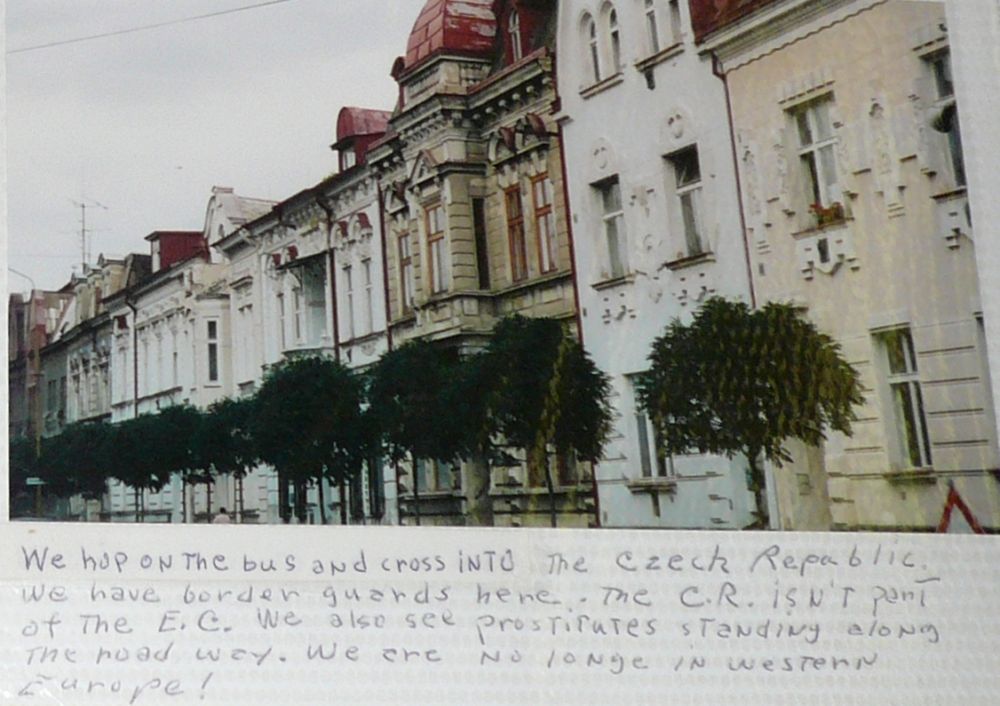 We hop on the bus and cross into the Czech Republic.
We have border guards here. The C.R. isn't part
of the E.C. We also see prostitutes standing along
the road way. We are no longe in western
Europe!